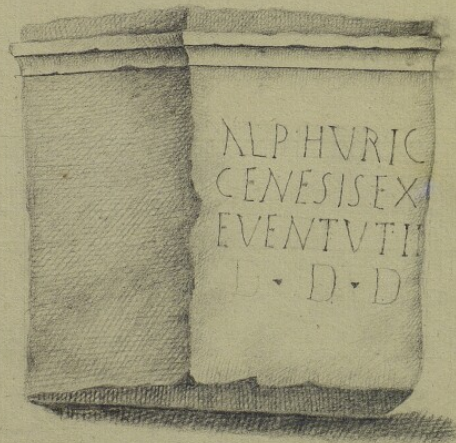 ALP·HVRIC
CENESISEX
EVENTVTII
D · D · D